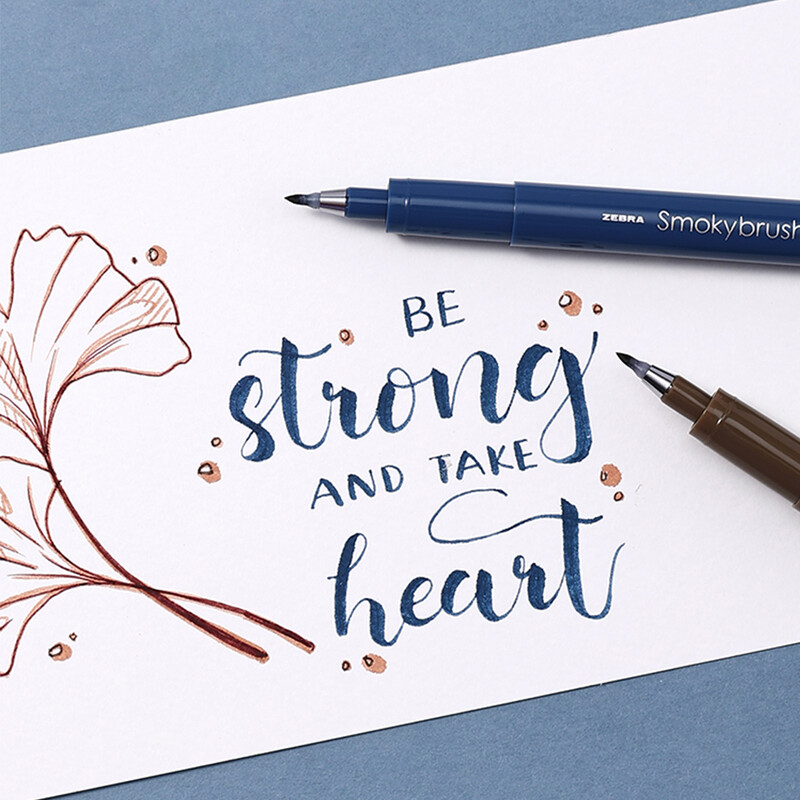 ZEBRA Smokybrush
BE
strong
AND TAKE
heart